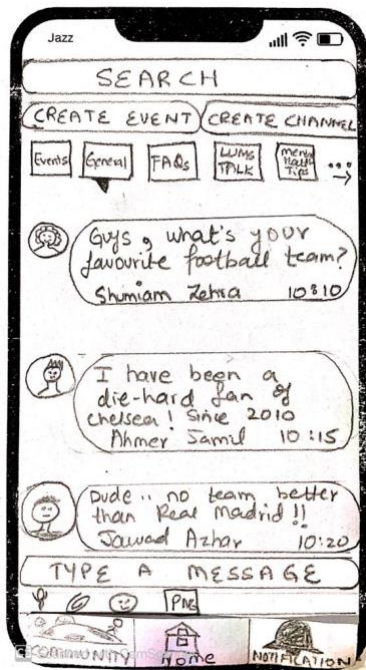 Jazz
SEARCH
CREATE EVENT CREATE CHANNEL
Events General FAQs LUMS TALK Mental Health Tips
Guys, what's your
favourite football team?
Shumiam Zehra 10:10
I have been a
die-hard fan of
Chelsea! Since 2010
Ahmer Jamil 10:15
Dude.. no team better
than Real Madrid!!
Jawad Azhar 10:20
TYPE A MESSAGE
PNG
COMMUNITY Home NOTIFICATION